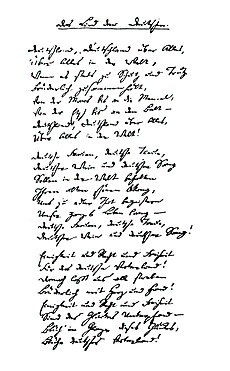 Das Lied der Deutschen.
Deutschland, Deutschland über Alles,
Über Alles in der Welt,
Wenn es stets zu Schutz und Trutz
Brüderlich zusammenhält,
Von der Maas bis an die Memel,
Von der Etsch bis an den Belt –
Deutschland, Deutschland über Alles,
Über Alles in der Welt!
Deutsche Frauen, deutsche Treue,
Deutscher Wein und deutscher Sang
Sollen in der Welt behalten
Ihren alten schönen Klang,
Uns zu edler That begeistern
Unser ganzes Leben lang –
Deutsche Frauen, deutsche Treue,
Deutscher Wein und deutscher Sang!
Einigkeit und Recht und Freiheit
Für das deutsche Vaterland!
Danach lasst uns alle streben
Brüderlich mit Herz und Hand!
Einigkeit und Recht und Freiheit
Sind des Glückes Unterpfand –
Blüh im Glanze dieses Glückes,
Blühe deutsches Vaterland!